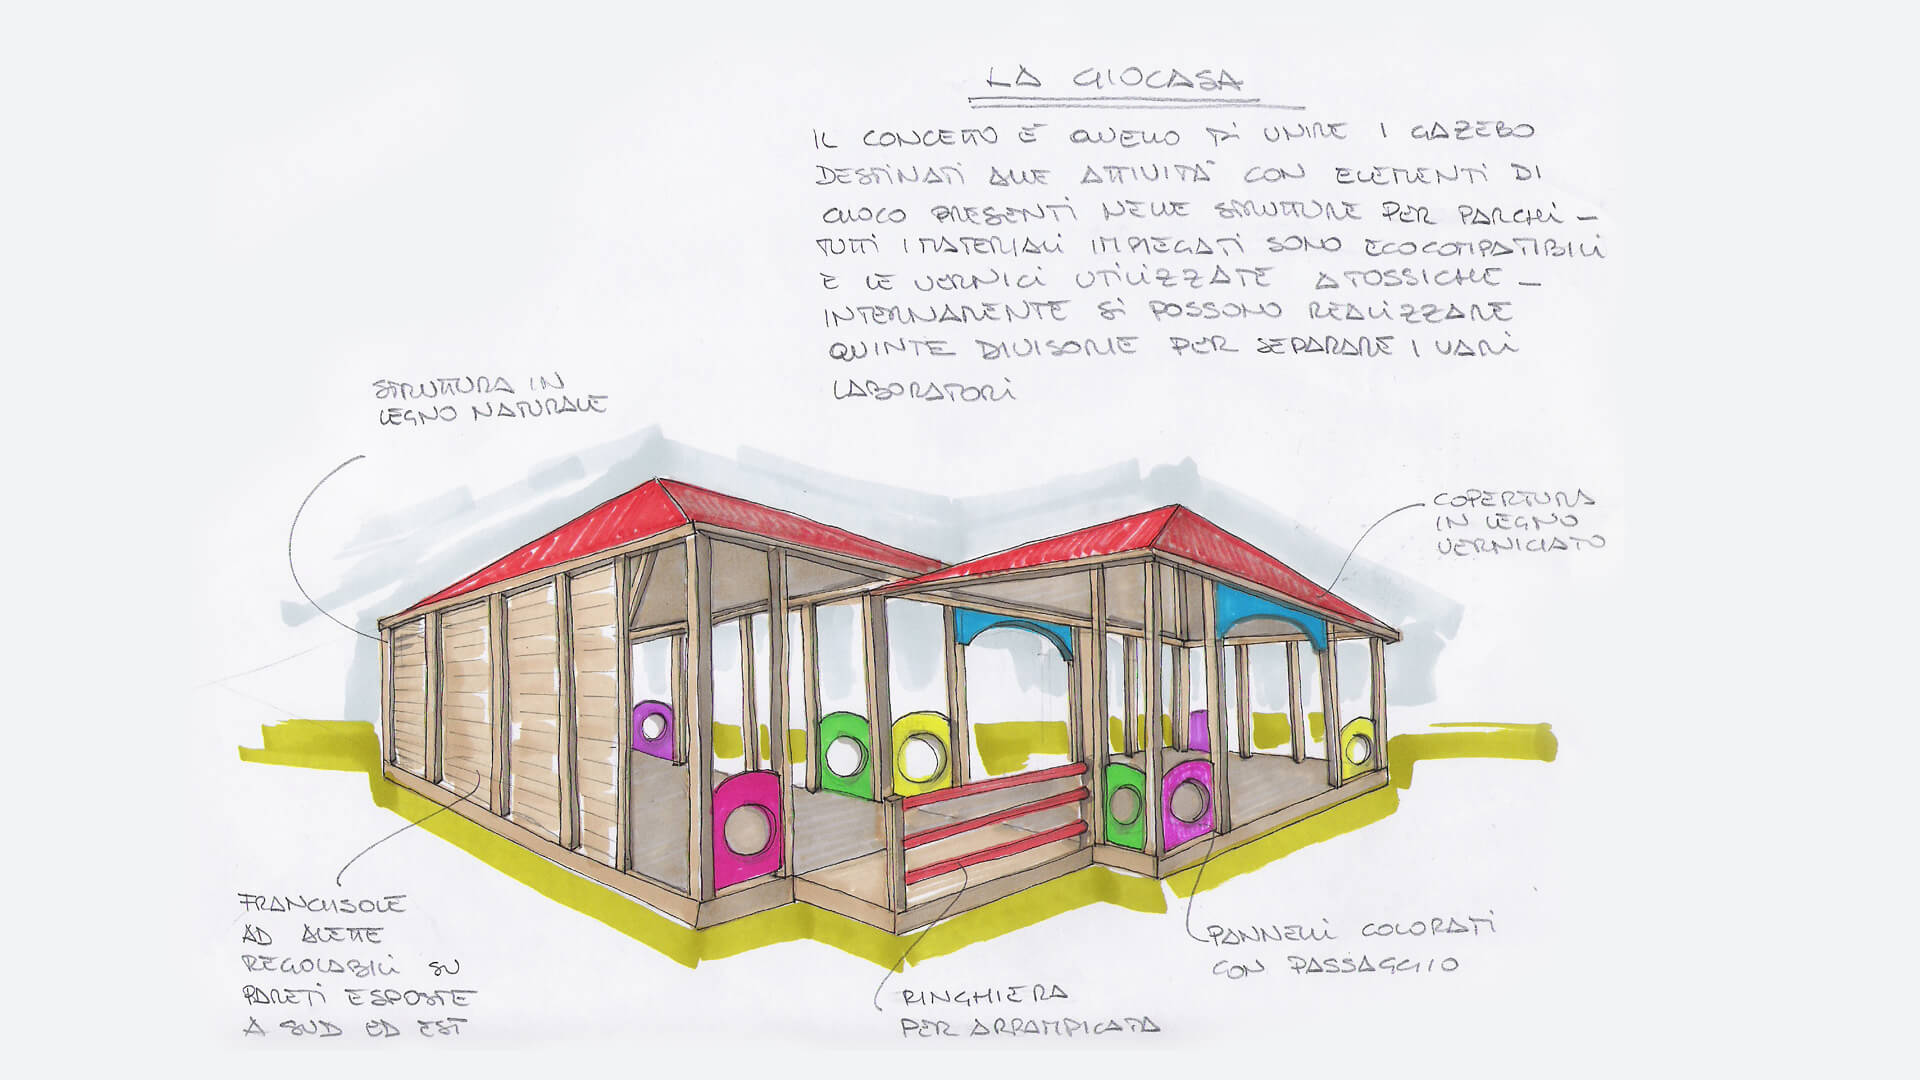 LA GIOCASA
IL CONCETTO È QUELLO DI UNIRE I GAZEBO
DESTINATI ALLE ATTIVITÀ CON ELEMENTI DI
GIOCO PRESENTI NELLE STRUTTURE PER PARCHI –
TUTTI I MATERIALI IMPIEGATI SONO ECOCOMPATIBILI
E LE VERNICI UTILIZZATE ATOSSICHE –
INTERNAMENTE SI POSSONO REALIZZARE
QUINTE DIVISORIE PER SEPARARE I VARI
LABORATORI
STRUTTURA IN
LEGNO NATURALE
COPERTURA
IN LEGNO
VERNICIATO
FRANGISOLE
AD ALETTE
REGOLABILI SU
PARETI ESPOSTE
A SUD ED EST
RINGHIERA
PER ARRAMPICATA
PANNELLI COLORATI
CON PASSAGGIO